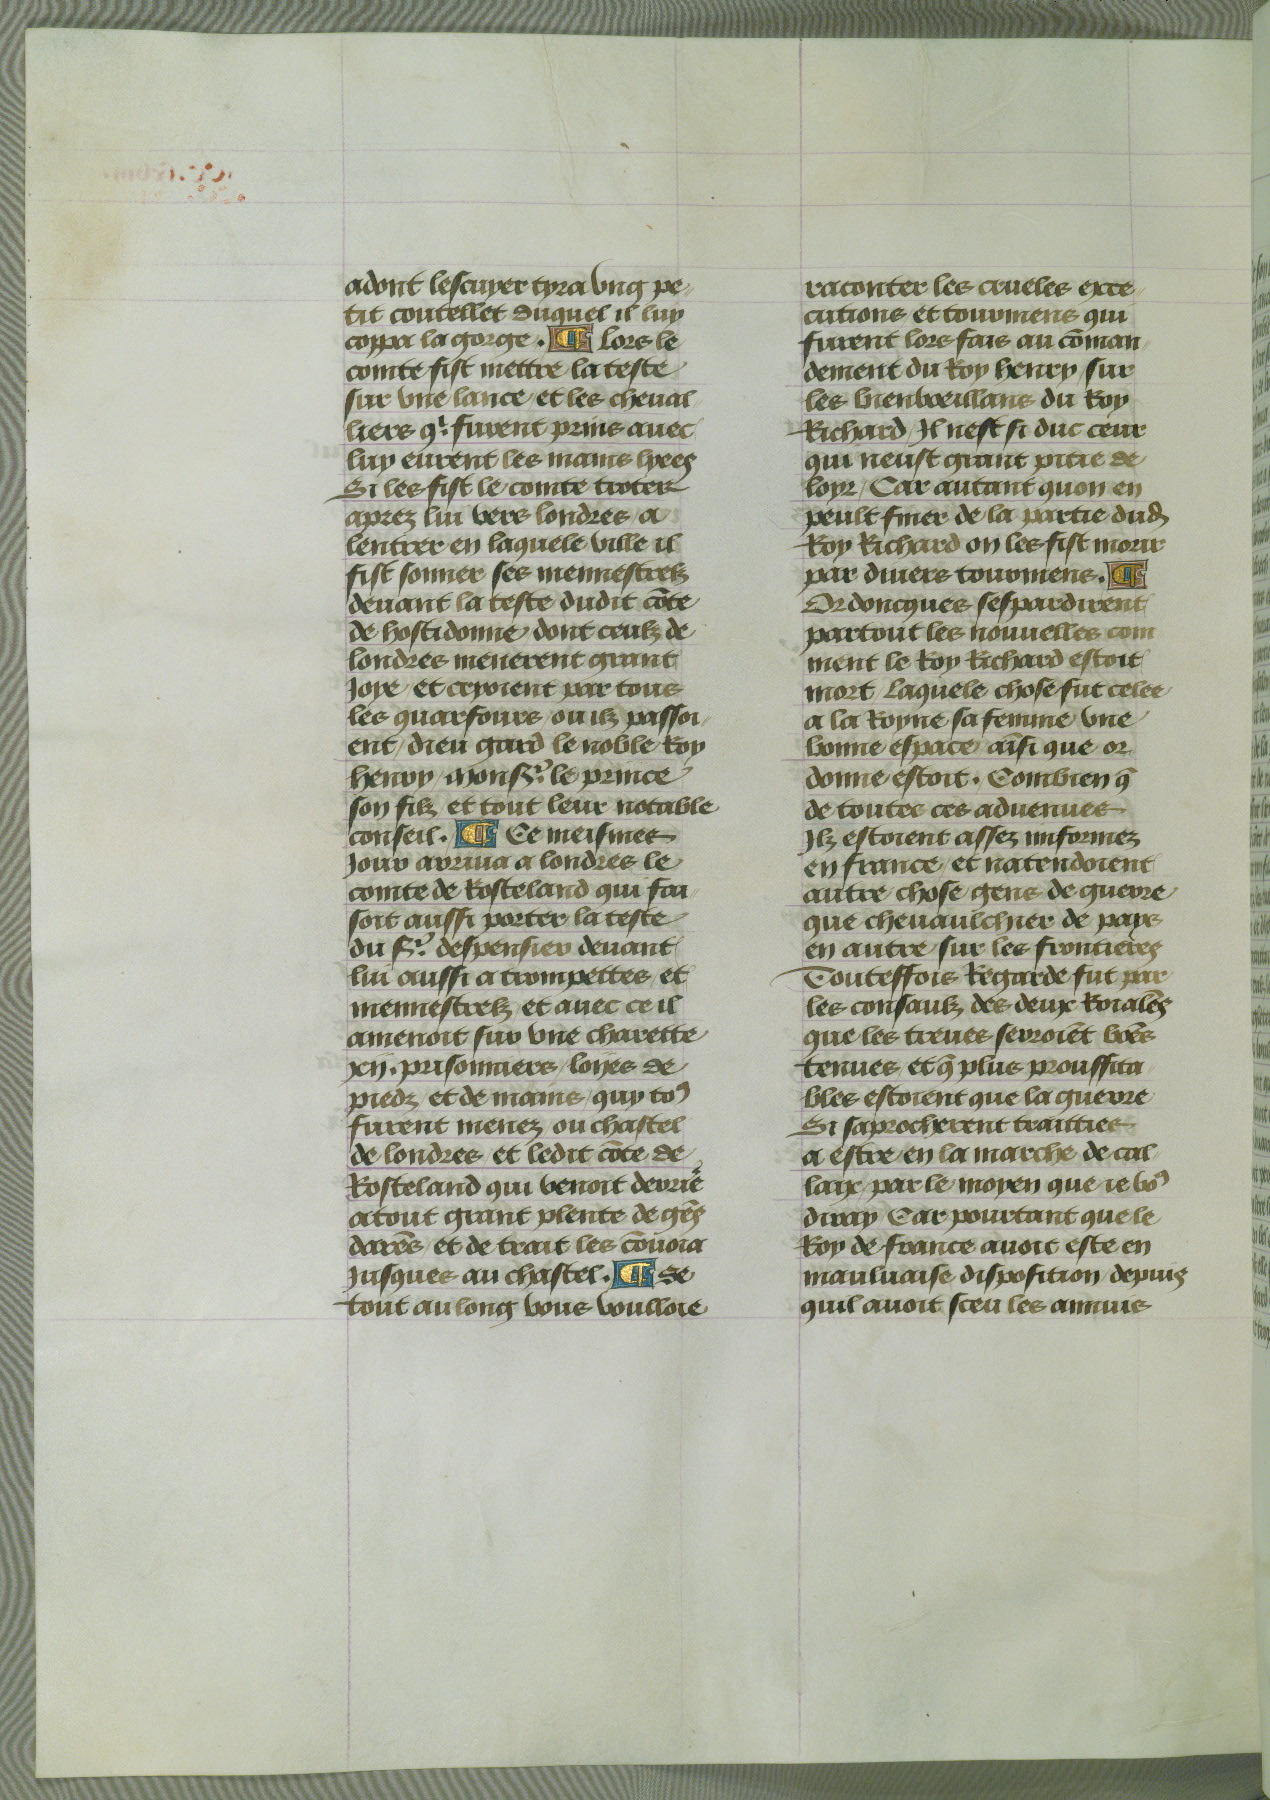 adont lescuyer tyra ung pe-
tit coutellet duquel il luy
coppa la gorge. ¶ Lors le
comte fist mettre la teste
sur une lance et les cheual
liers qⁱ furent prins auec
luy eurent les mains lyees
Si les fist le comte troter
aprez lui vers londres / a
lentrer en laquele ville il
fist sonner ses mennestrelz
deuant la teste dudit cōte
de hostidonne / dont ceulz de
londres menerent grant
Joye / et cryoient par tous
les quarfours / ou ilz passoi-
ent / dieu gard le noble Roy
henry / monsʳ. le prince
son filz et tout leur notable
conseil. ¶ Ce meismes
Jour arriua a londres le
comte de Rosteland qui fai-
soit aussi porter la teste
du sʳ. despensier deuant
lui aussi a trompettes et
mennestrelz / et auec ce il
amenoit sur une charette
xij. prisonniers / loyes de
piedz et de mains / quy toꝰ
furent menez ou chastel
de londres / et ledit cōte de
Rosteland qui venoit derriē
atout grant plente de gēs
darēs et de trait les cōuoia
Jusques au chastel. ¶ Se
tout au long vous voulloie
raconter les crueles exec-
cutions et tourmens qui
furent lors fais au cōman-
dement du Roy henry / sur
les bienvoeillans du Roy
Richard / Il nest si duc ceur
qui neust grant pitie de
loyr / Car autant quon en
peult finer de la partie dud
Roy Richard on les fist morir
par diuers tourmens. ¶
Ordoncques sespardirent
partout les nouuelles com
ment le Roy Richard estoit
mort / Laquele chose fut celee
a la Royne sa femme / une
bonne espace / aīsi que or
donne estoit. Combien q̄
de toutes ces aduenues
Ilz estoient assez imformez
en france / et natendoient
autre chose gens de guerre
que cheuaulchier de pays
en autre / sur les frontieres
Toutesfois Regarde fut par
les consaulz des deux Roialēs
que les treues seroiēt bōes
tenues / et q̄ plus prouffita
bles estoient que la guerre
Si saprocherent traitties
a estre en la marche de cal-
laix / par le moyen que ie voꝰ
diray / Car pourtant que le
Roy de france auoit este en
mauluaise disposition / depuis
quil auoit sceu les annuis